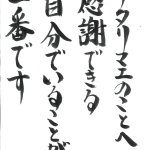 タリマエのことへ
感謝できる
自分でいることが
一番です